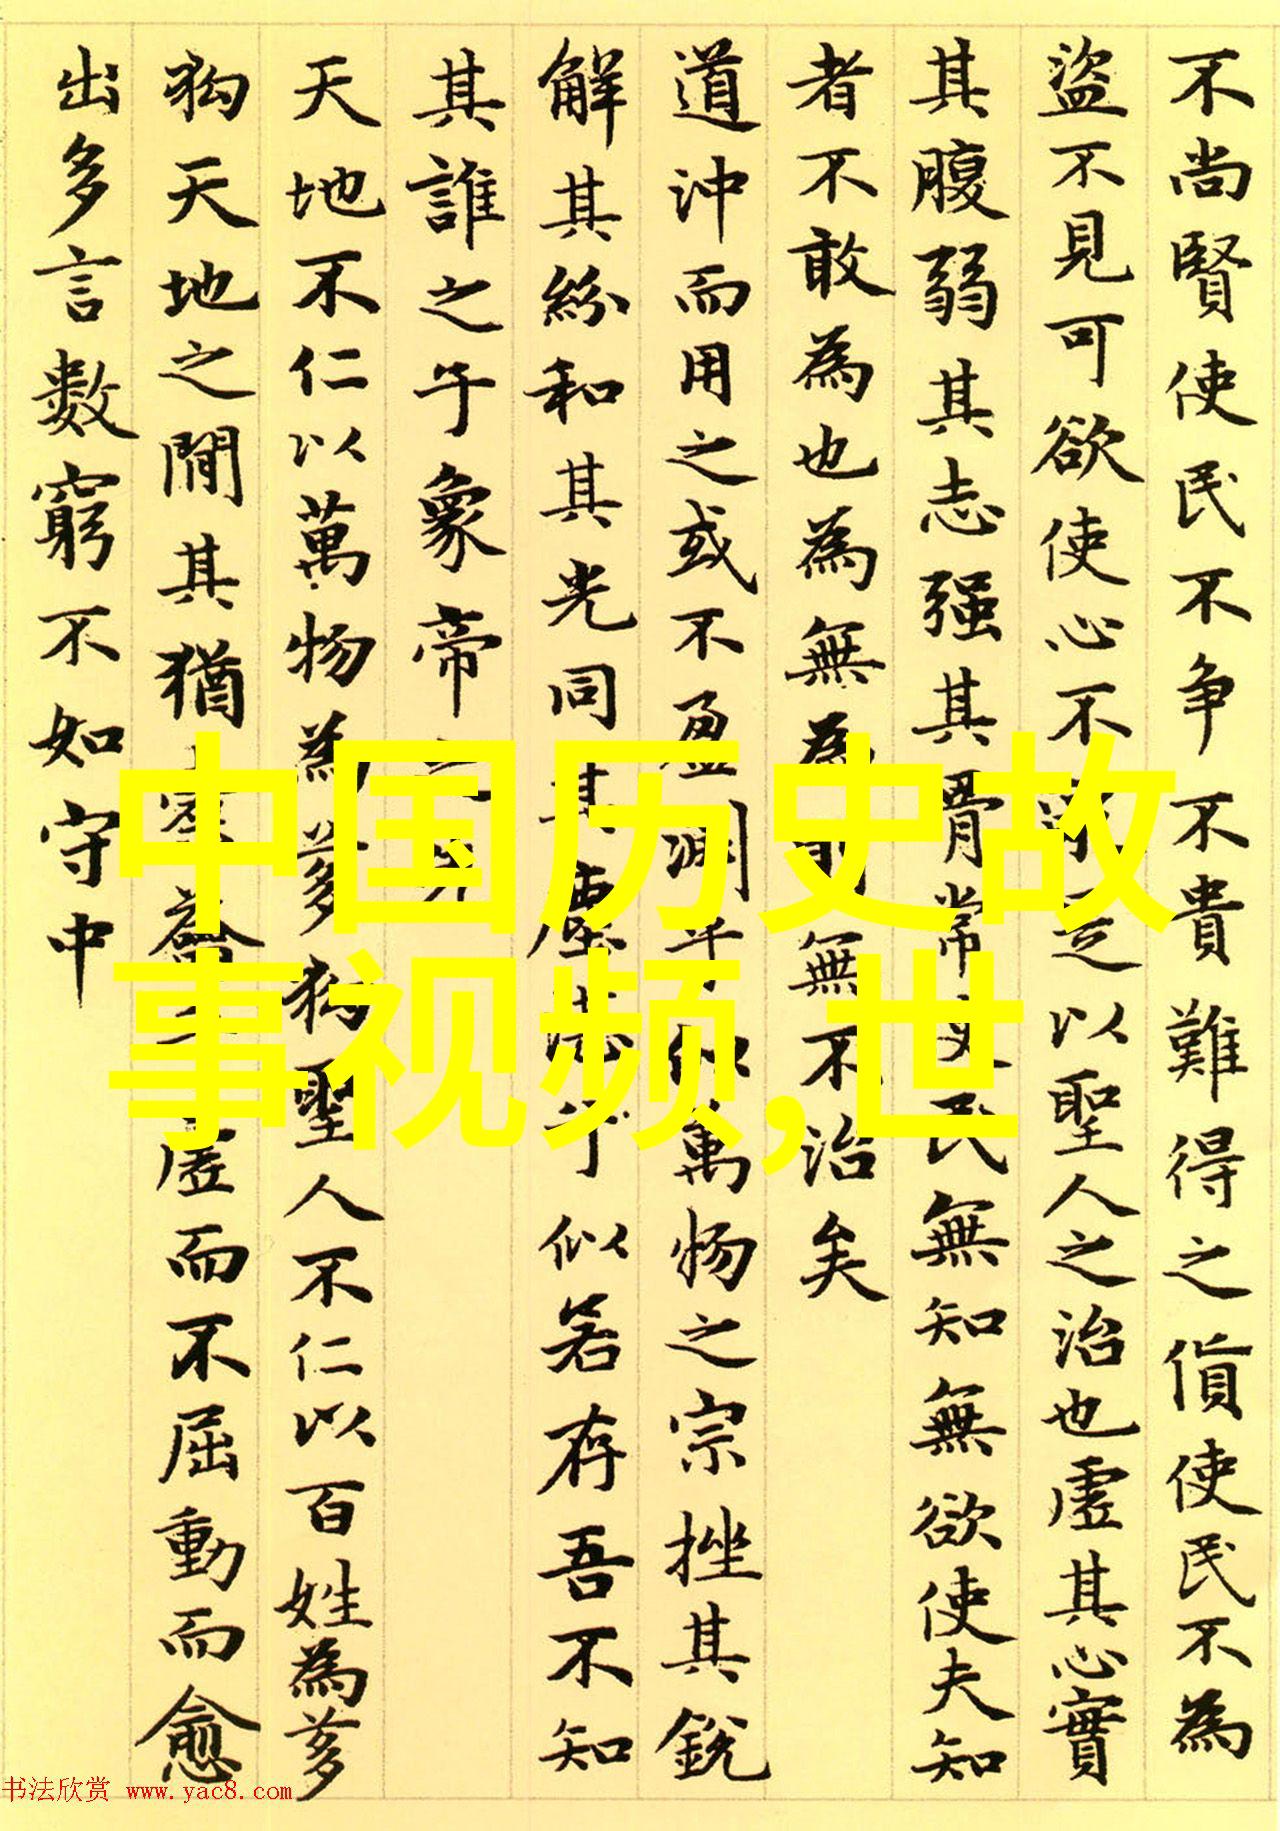 不尚賢使民不争不貴難得之貨使民不為
盜不見可欲使心不以聖人之治也虛其心實
其腹弱其志强其骨常民無知無欲使夫知
者不敢為也為無為無不治矣
道沖而用之或不盈淵乎似萬物之宗挫其銳
解其紛和其光同其塵湛乎似若存吾不知
其誰之子象帝之先
天地不仁以萬物為芻狗聖人不仁以百姓為芻
狗天地之間其猶橐虛而不屈動而愈
出多言數窮不如守中
中国历史故
事视频,世
书法欣赏 www.yac8.com